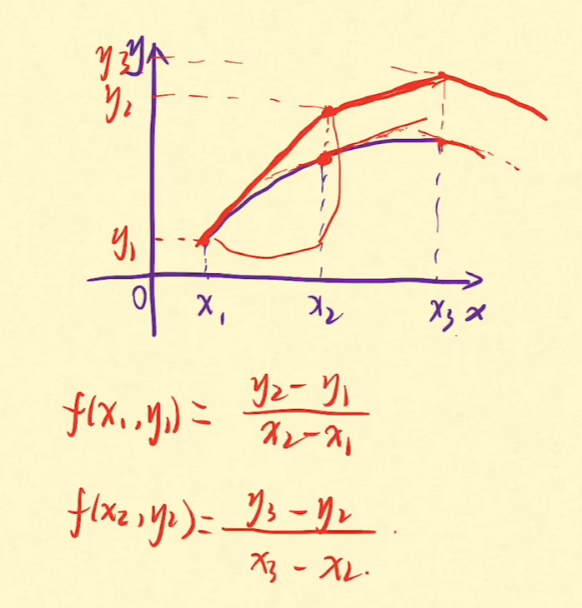 y₃ y
y₂
y₁
0 x₁ x₂ x₃ x
f(x₁,y₁) = (y₂ - y₁)/(x₂ - x₁)
f(x₂,y₂) = (y₃ - y₂)/(x₃ - x₂).